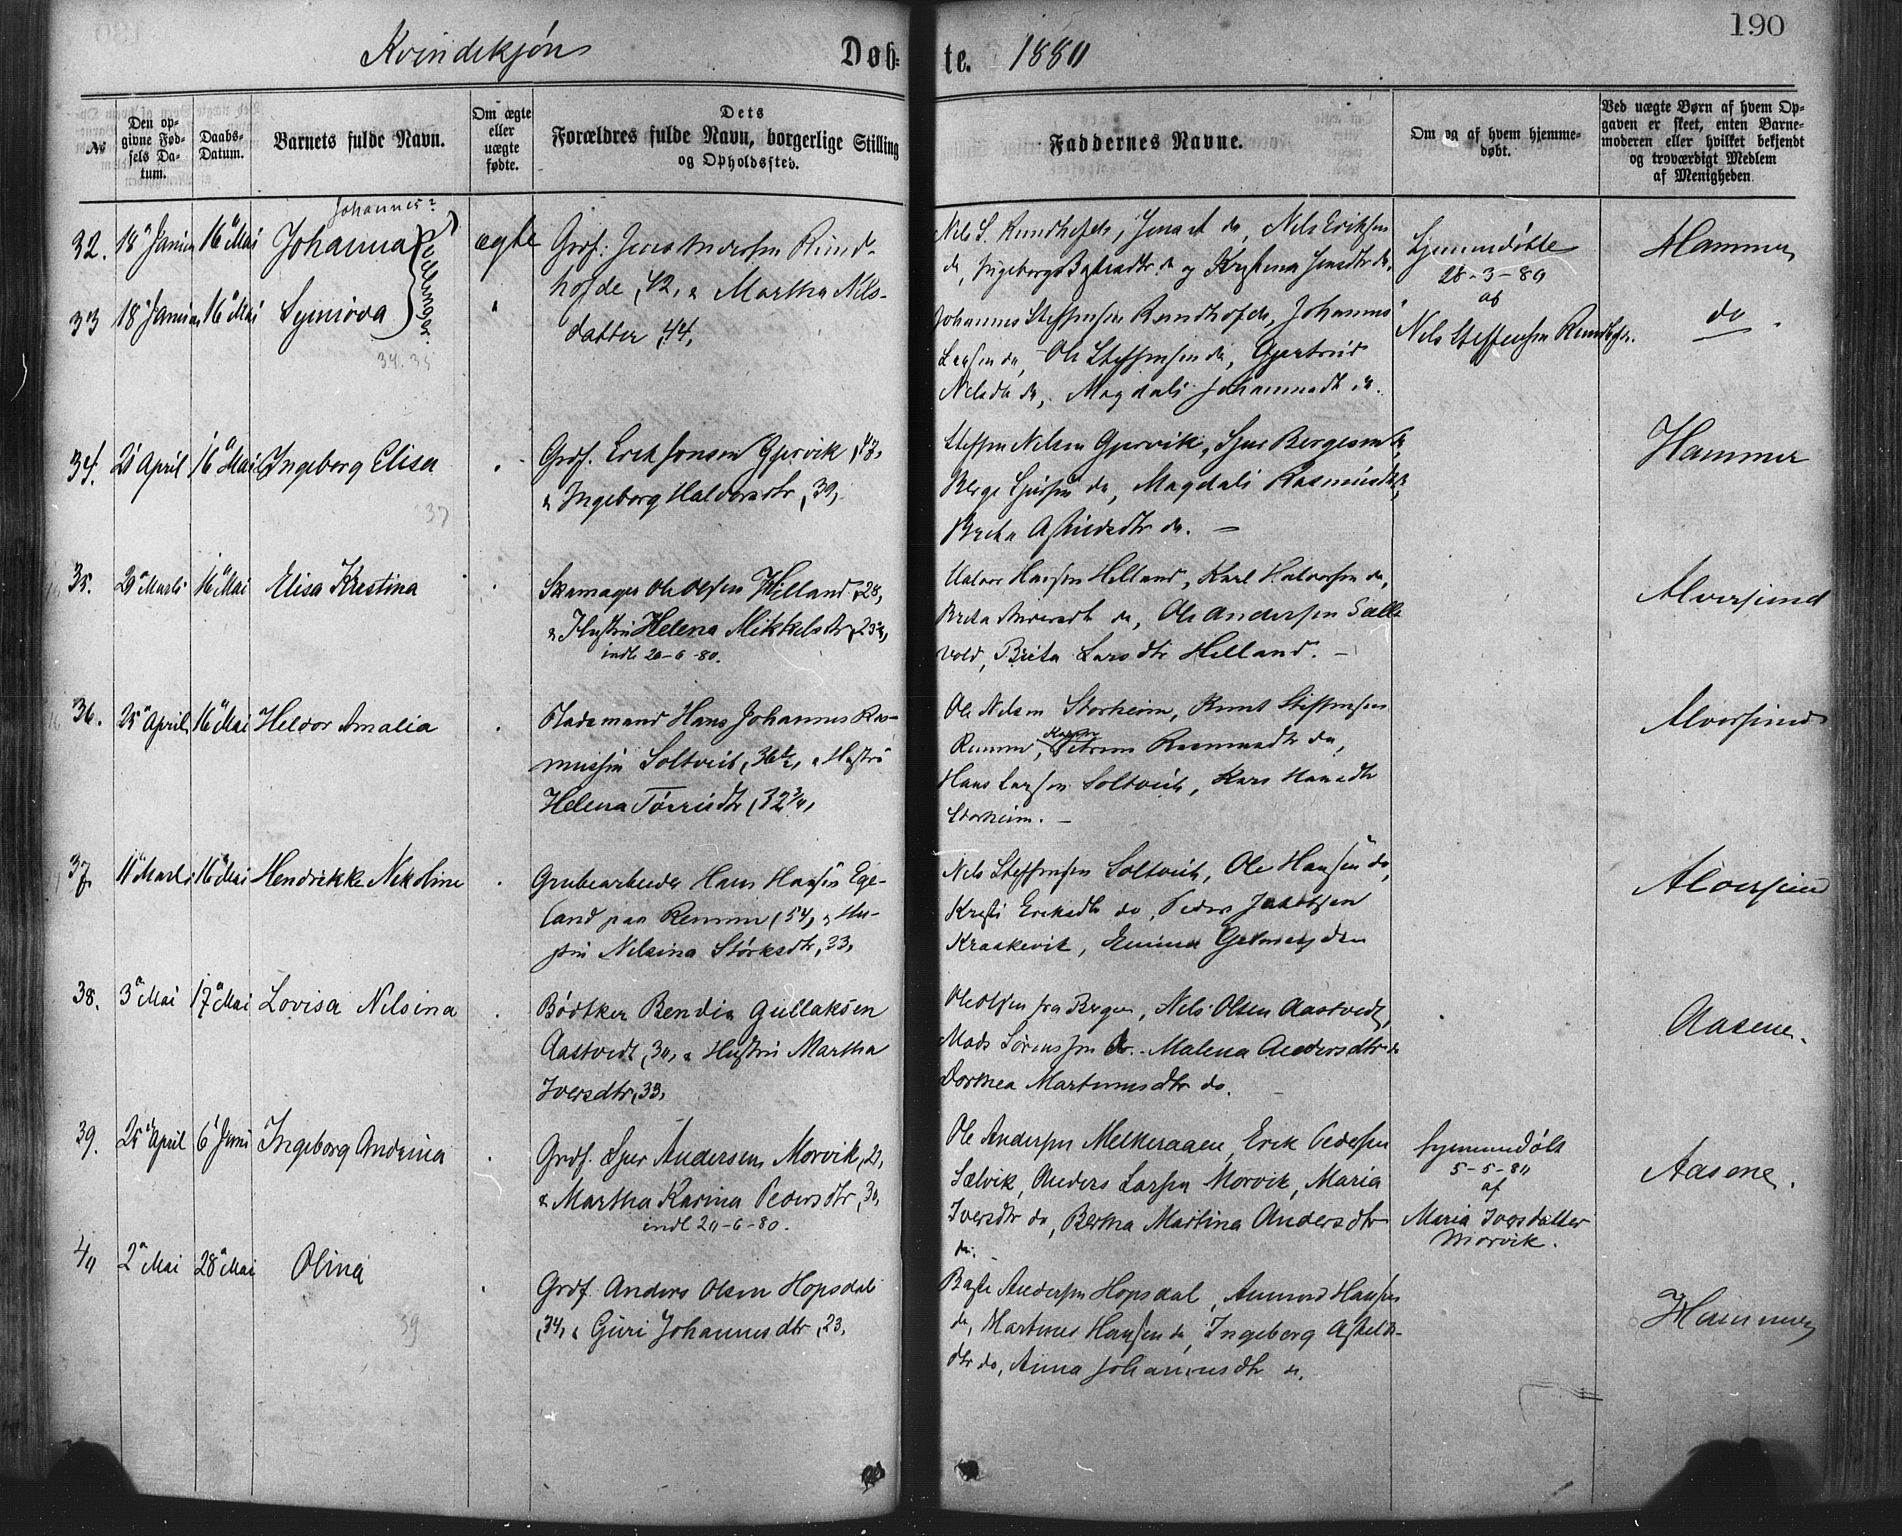 190
Kvindekjøn
Døb-
te. 1880
No
Den op-
givne Fød-
sels Da-
tum.
Daabs-
Datum.
Barnets fulde Navn.
Om ægte
eller
uægte
fødte.
Dets
Forældres fulde Navn, borgerlige Stilling
og Opholdssted.
Faddernes Navne.
Om og af hvem hjemme-
døbt.
Ved uægte Børn af hvem Op-
gaven er skeet, enten Barne-
moderen eller hvilket bekjendt
og troværdigt Medlem
af Menigheden.
Johannes?
32. 18 Januar 16 Mai Johanna ægte
33 18 Januar 16 Mai Syniova
Tvillinger.
34.35
Grdf. Jens Andersen Rund-
hofde, 42, & Martha Nils-
datter, 44,
Nils S. Rundhofde, Jens A do, Nils Eriksen
do, Ingeborg do og Kristina Jensdtr do,
Johannes Steffensen Rundhofde, Johannes
Larsen do, Ole Steffensen do, Gjertrud
Nilsdtr do, Magdali Johannesdtr do.
Hjemmedøbte
28-3-80
af
Nils Steffensen Rundhofde.
Hammer
do
34. 21 April 16 Mai Ingeborg Elisa
37
Grdf. Erik Jonsen Gjervik, 43,
& Ingeborg Halvorsdtr, 39,
Steffen Nilsen Gjervik, Sjur Bergesen do,
Berge Sjursen do, Magdali Rasmusdtr do,
Brita do. —
Hammer
35. 29 Marts 16 Mai Elisa Kristina
Skomager Ole Olsen Helland, 28,
& Hustru Helena Mikkelsdtr, 23½,
indl. 20-6-80.
Halvor Hansen Helland, Karl Halvorsen do,
Brita do, Ole Andersen Sælle-
vold, Brita Larsdtr Helland. —
Alversund
36. 25 April 16 Mai Helvor Amalia
Pladsmand Hans Johannes Ras-
mussen Soltveit, 36½, & Hustru
Helena Tørrisdtr, 32¾,
Ole Nilsen Storheim, Knut Steffensen
Remme, Rasmusdtr do,
Hans Larsen Soltveit, Kari Hansdtr
Storheim. —
Alversund
37 11 Marts 16 Mai Hendrikke Nikoline
Grubearbeider Hans Hansen Ege-
land paa Remme, 54, & Hu-
stru Nilsina Størksdtr, 33,
Nils Steffensen Soltveit, Ole Hansen do,
Kristi Eriksdtr do, Peder Jakobsen
Kraakevik, Emma
Alversund
38. 3 Mai 17 Mai Lovisa Nilsina
Bødtker Bendix Gullaksen
Aastvedt, 30, & Hustru Martha
Iversdtr, 33,
Ole Olsen fra Bergen, Nils Olsen Aastvedt,
Mads Sørensen do. Malena Andersdtr do
Dorthea Martinusdtr do.
Aasene.
39. 25 April 6 Juni Ingeborg Andrina
Grdf. Sjur Andersen Morvik, 21,
& Martha Karina Pedersdtr, 30,
indl 20-6-80.
Ole Andersen Melkeraaen, Erik Pedersen
Sælvik, Anders Larsen Morvik, Maria
Iversdtr do, Bertha Martina Andersdtr
do.
Hjemmedøbt
5-5-80
af
Maria Iversdatter
Morvik.
Aasene.
40 2 Mai 28 Mai Olina
39
Grdf. Anders Olsen Hopsdal
, 34, & Guri Johannesdtr, 23,
Andersen Hopsdal, Amund Hansen
do, Martinus Hansen do, Ingeborg
dtr do, Anna Johannesdtr do.
Hammer